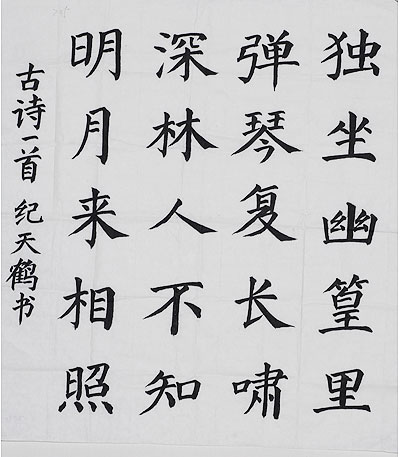 独坐幽篁里
弹琴复长啸
深林人不知
明月来相照
古诗一首 纪天鹤书